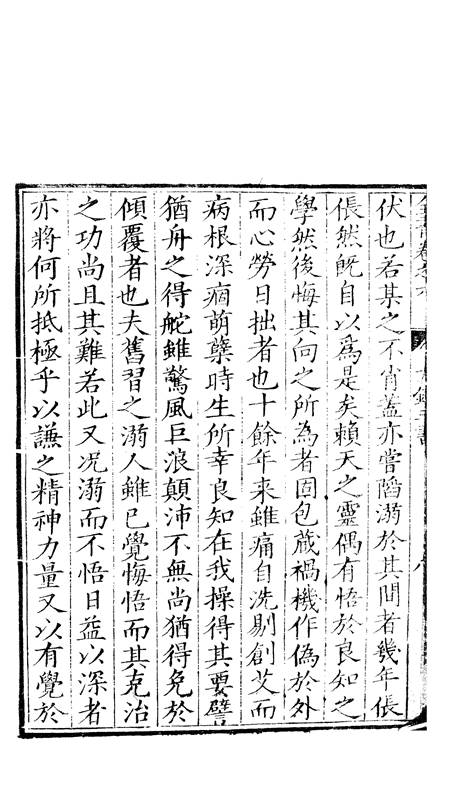 伏也若某之不肖蓋亦嘗陷溺於其間者幾年倀
倀然旣自以爲是矣賴天之靈偶有悟於良知之
學然後悔其向之所為者固包藏禍機作偽於外
而心勞日拙者也十餘年来雖痛自洗剔創艾而
病根深痼萌櫱時生所幸良知在我操得其要譬
猶舟之得舵雖驚風巨浪顛沛不無尚猶得免於
傾覆者也夫舊習之溺人雖已覺悔悟而其克治
之功尚且其難若此又况溺而不悟日益以深者
亦將何所抵極乎以謙之精神力量又以有覺於